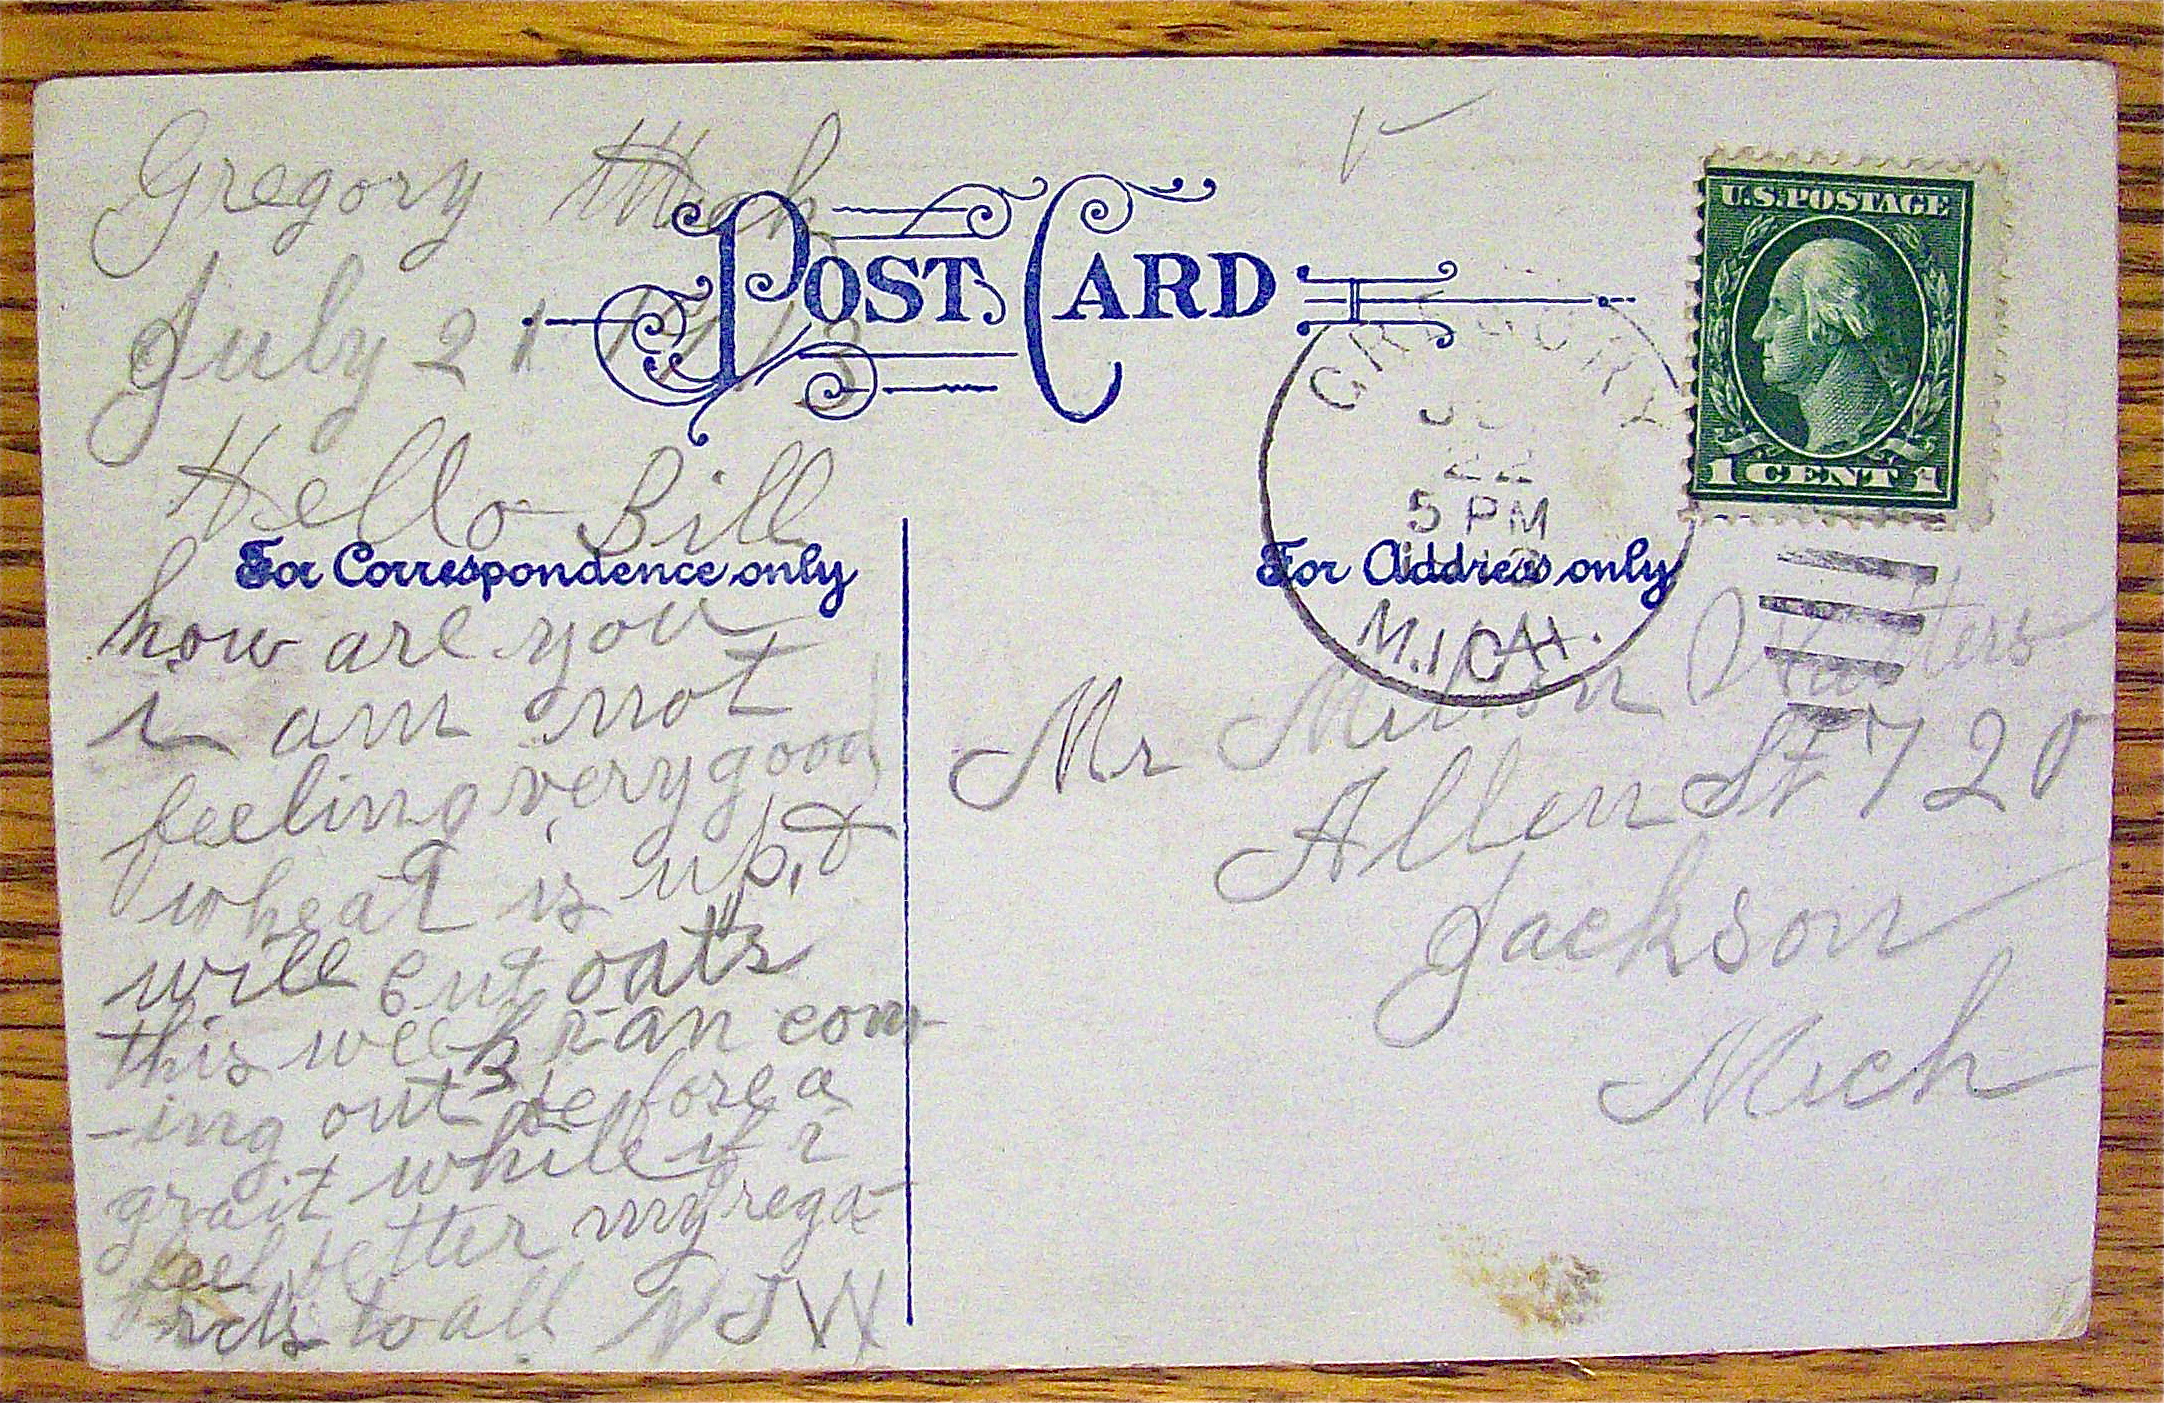 Gregory Mich
July 21 1913
POST CARD
U.S. POSTAGE
1 CENT 1
GREGORY
22
5 PM
MICH.
Hello Bill
For Correspondence only
For Address only
how are you
i am not
feeling very good
wheat is up,
will cut oats
this week
ing out before a
while if i
feel better my rega
rds to all
Mr Milton
Allen St 720
Jackson
Mich